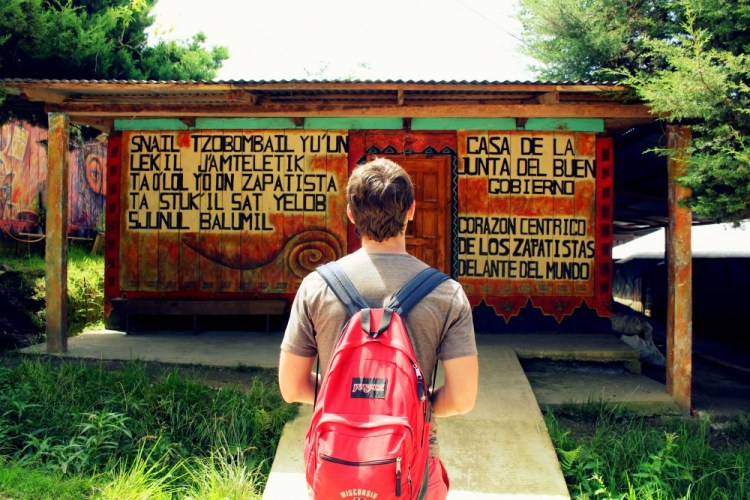 SNAIL TZOBOMBAIL YU'UN
LEKIL J'AMTELETIK
TA O'LOL YO'ON ZAPATISTA
TA STUK'IL SAT YELOB
SJUNUL BALUMIL
CASA DE LA
JUNTA DEL BUEN
GOBIERNO
CORAZON CENTRICO
DE LOS ZAPATISTAS
DELANTE DEL MUNDO
JANSPORT
WISCONSIN